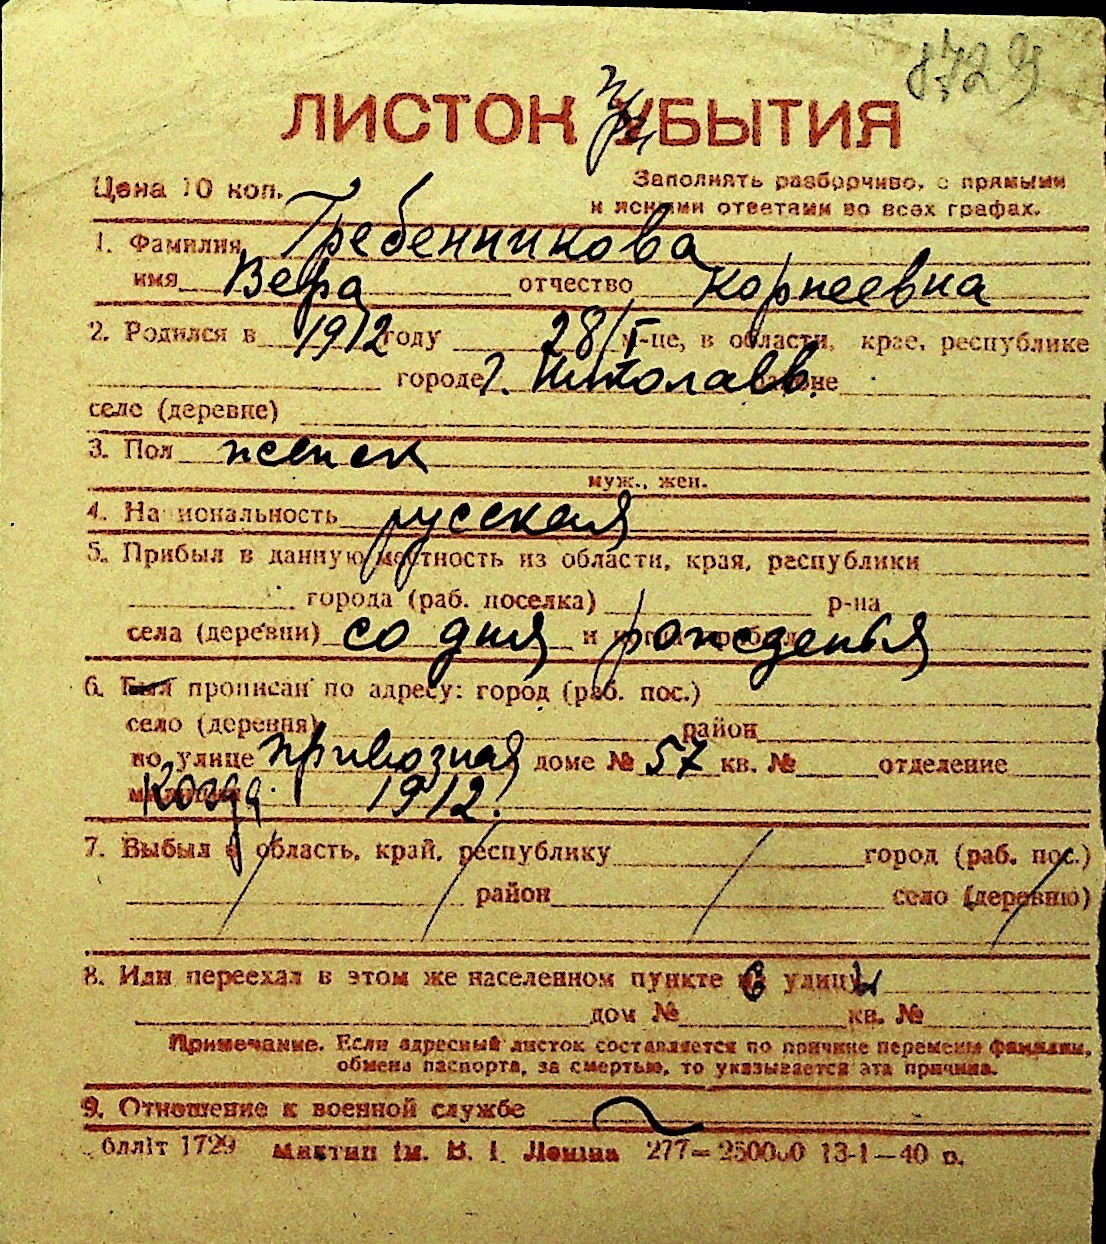 8729
ЛИСТОК ПРИБЫТИЯ
Цена 10 коп.
Заполнять разборчиво, с прямыми
и ясными ответами во всех графах.
1. Фамилия Гребенникова
имя Вера отчество Корнеевна
2. Родился в 1912 году 28/I м-це, в области, крае, республике
городе г. Николаев. районе
селе (деревне)
3. Пол женск
муж., жен.
4. Национальность русская
5. Прибыл в данную местность из области, края, республики
города (раб. поселка) р-на
села (деревни) со дня и когда прибыл рожденья
6. Был прописан по адресу: город (раб. пос.)
село (деревня) район
по улице Привозная доме № 57 кв. № отделение
Когда. 1912.
7. Выбыл в область, край, республику город (раб. пос.)
район село (деревню)
8. Или переехал в этом же населенном пункте с улицы
дом № кв. №
Примечание. Если адресный листок составляется по причине перемены фамилии,
обмена паспорта, за смертью, то указывается эта причина.
9. Отношение к военной службе
блліт 1729 Миктип ім. В. І. Леніна 277—250000 13-І—40 р.